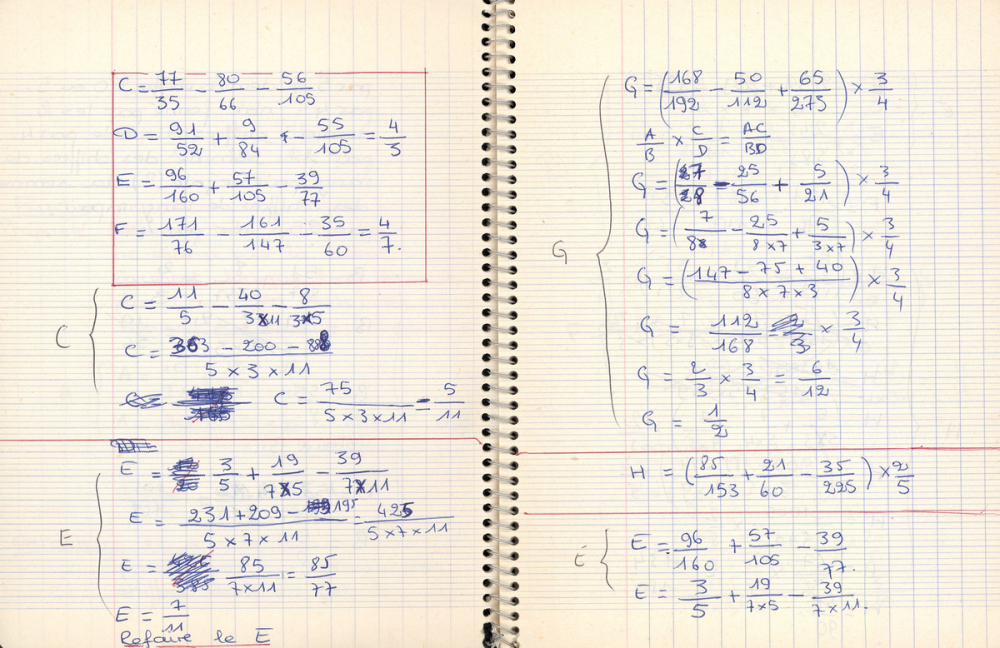 C = 77/35 - 80/66 - 56/105
D = 91/52 + 9/84 - 55/105 = 4/3
E = 96/160 + 57/105 - 39/77
F = 171/76 - 161/147 - 35/60 = 4/7.
C
C = 11/5 - 40/3×11 - 8/3×5
C = 363 - 200 - 88/5 × 3 × 11
C = 75/5 × 3 × 11 = 5/11
E
E = 3/5 + 19/7×5 - 39/7×11
E = 231 + 209 - 195/5 × 7 × 11 = 425/5 × 7 × 11
E = 85/7×11 = 85/77
E = 7/11
Refaire le E
G
G = (168/192 - 50/112 + 65/273) × 3/4
A/B × C/D = AC/BD
G = (27/28 - 25/56 + 5/21) × 3/4
G = (7/8 - 25/8×7 + 5/3×7) × 3/4
G = (147 - 75 + 40/8 × 7 × 3) × 3/4
G = 112/168 × 3/4
G = 2/3 × 3/4 = 6/12
G = 1/2
H = (85/153 + 21/60 - 35/225) × 2/5
E
E = 96/160 + 57/105 - 39/77.
E = 3/5 + 19/7×5 - 39/7×11.